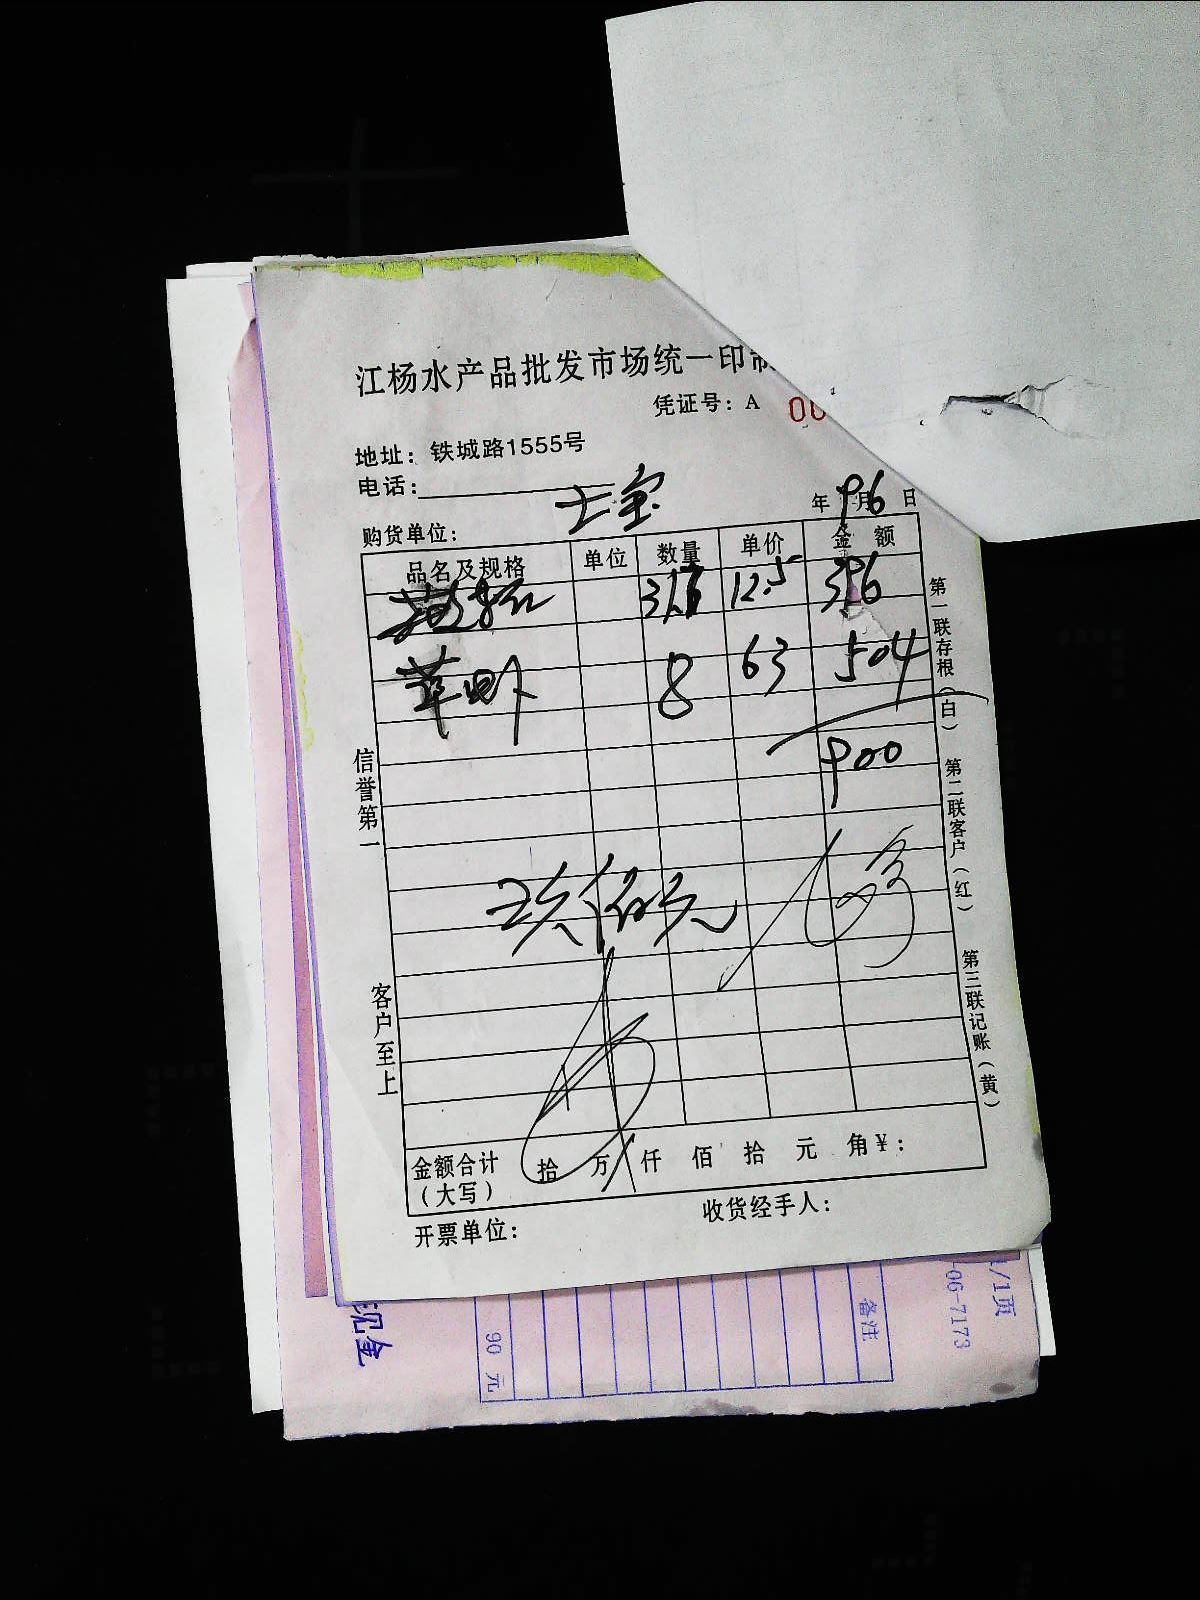 江杨水产品批发市场统一印制
凭证号：A 00
地址：铁城路1555号
电话：
购货单位： 年 9 月 6 日
品名及规格 单位 数量 单价 金额
12.5 396
8 63 504
900
玖佰元
信誉第一
客户至上
第一联存根（白）
第二联客户（红）
第三联记账（黄）
金额合计（大写） 拾 万 仟 佰 拾 元 角 ¥：
开票单位： 收货经手人：
现金
90 元
备注
-06-7173
1/1页